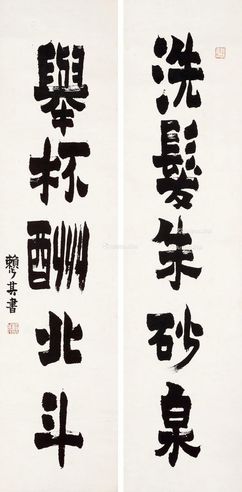 洗髮朱砂泉
舉杯酬北斗
賴少其書